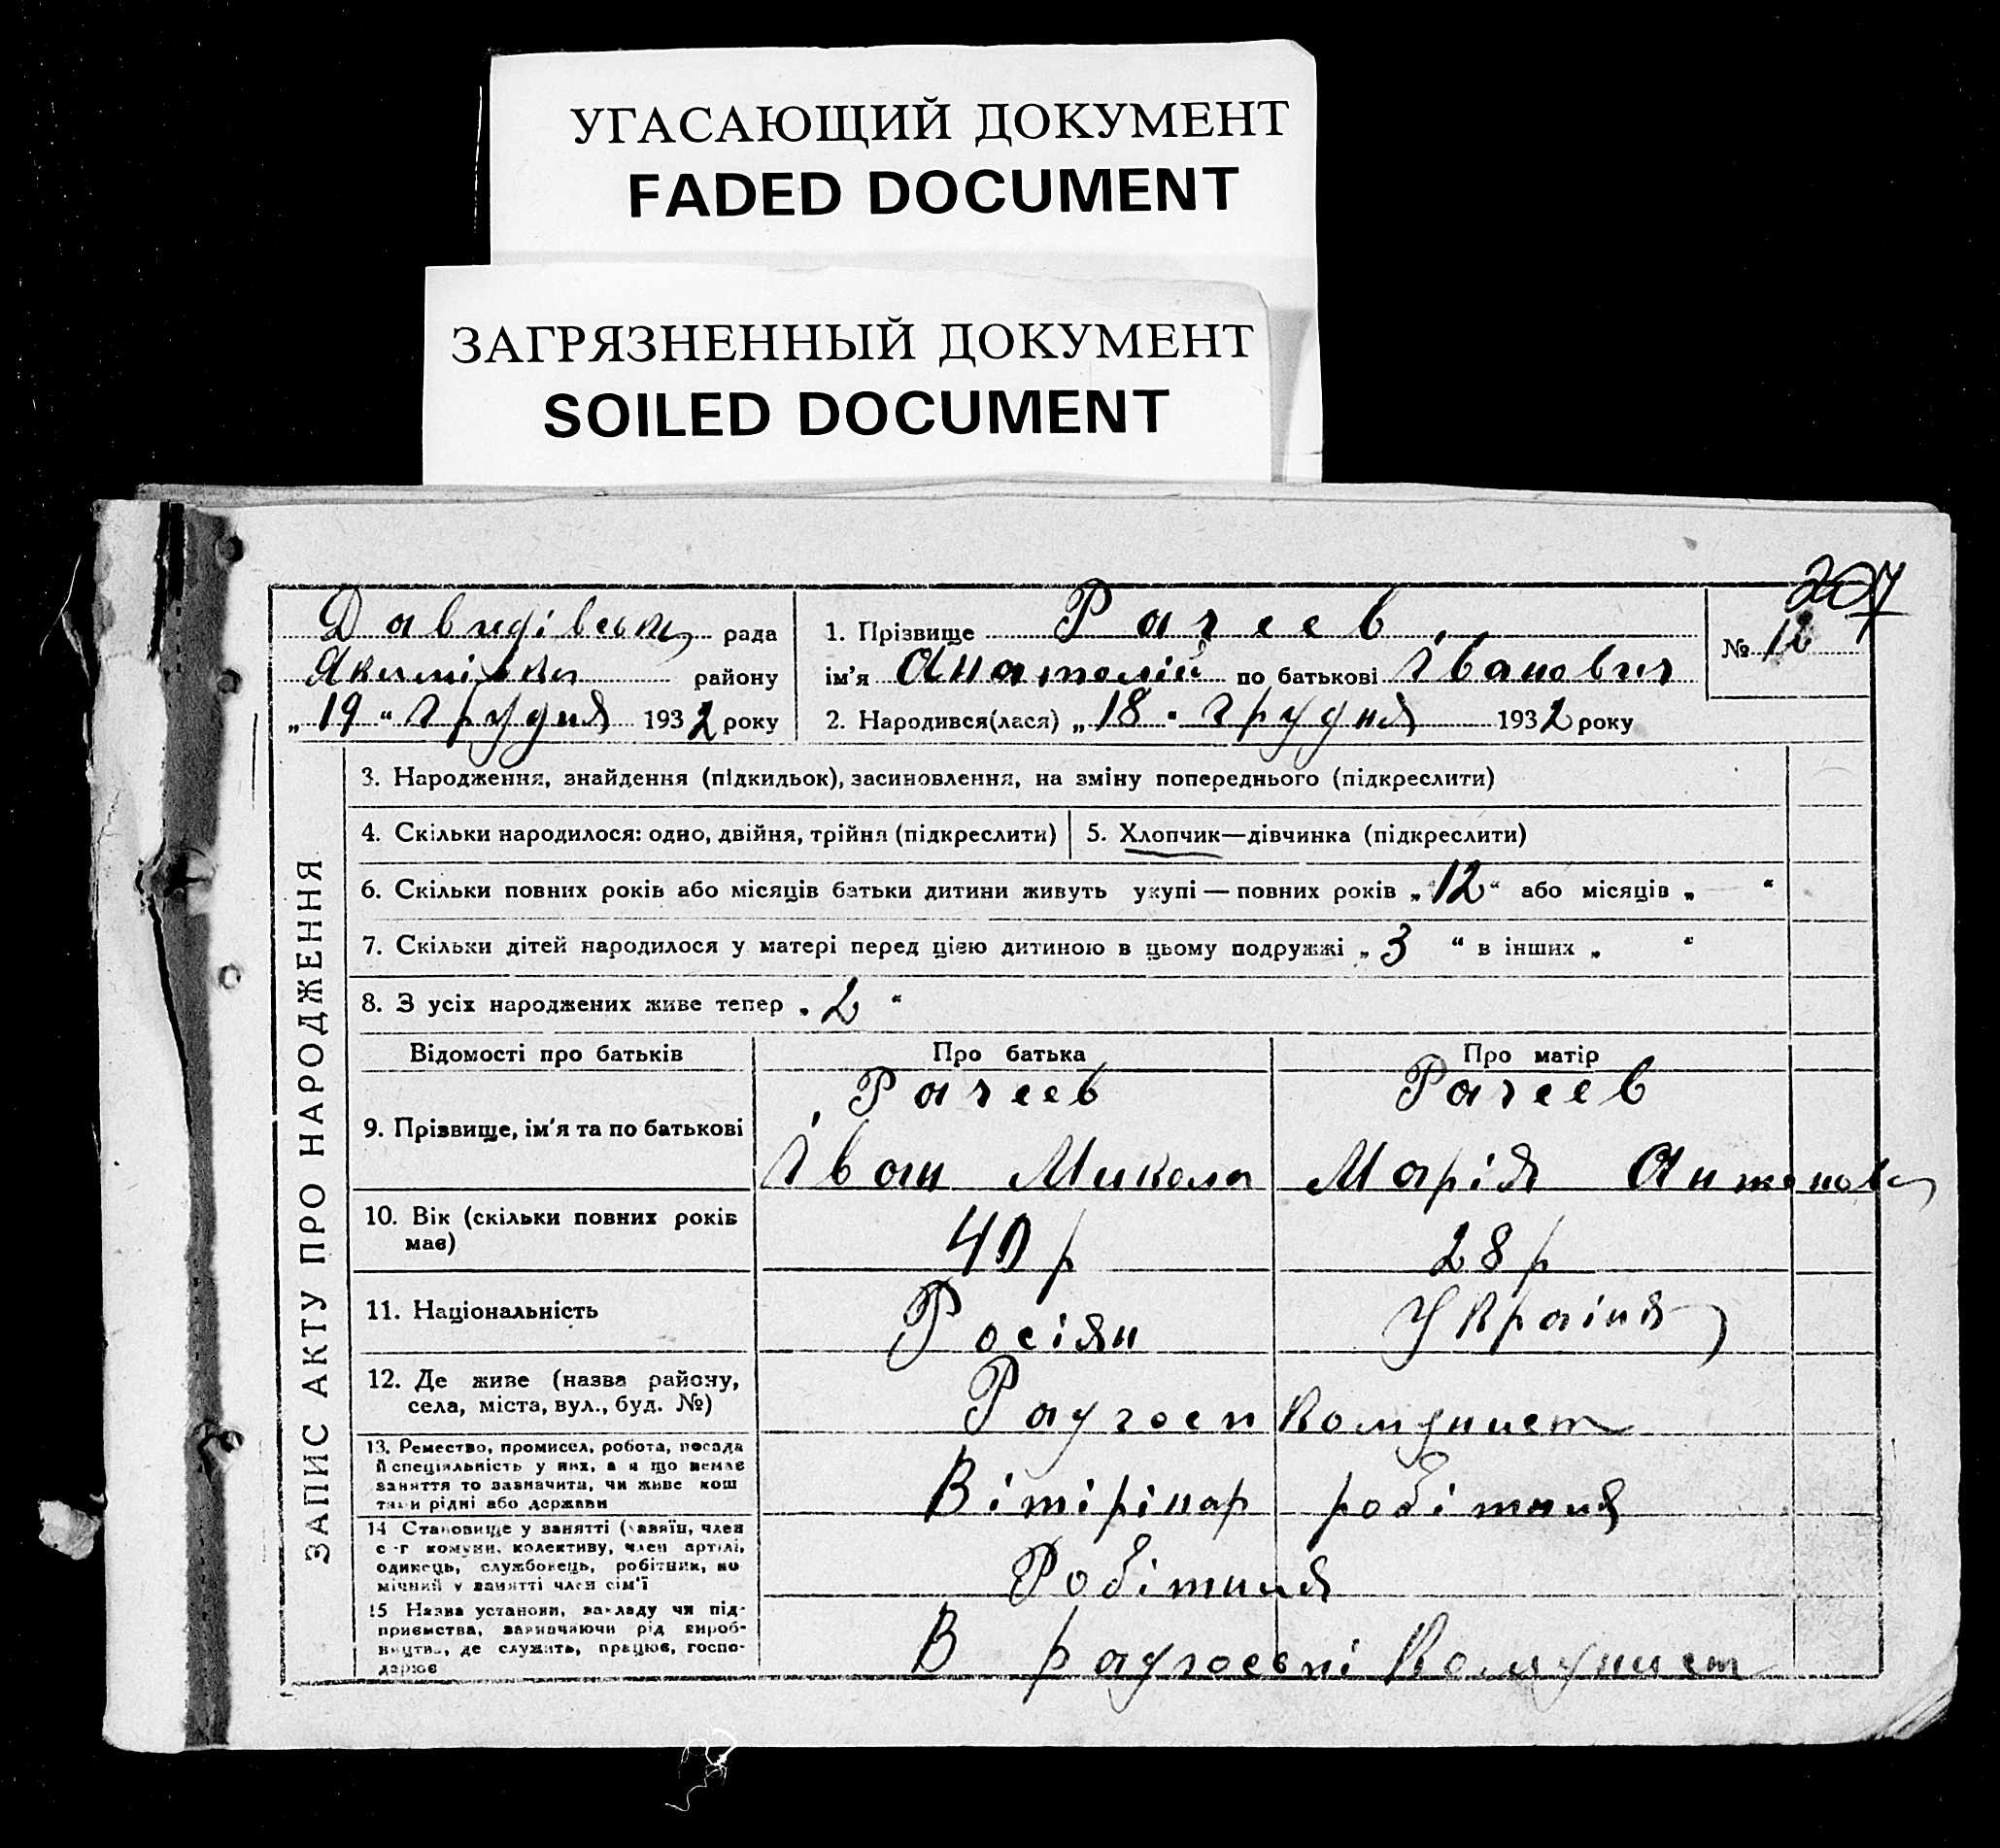 УГАСАЮЩИЙ ДОКУМЕНТ
FADED DOCUMENT
ЗАГРЯЗНЕННЫЙ ДОКУМЕНТ
SOILED DOCUMENT
207
Давидівськ рада
Якимівськ району
„19“ грудня 1932 року
1. Прізвище Рагеев
ім'я Анатолій по батькові Іванович
2. Народився(лася) „18“ грудня 1932 року
№ 12
ЗАПИС АКТУ ПРО НАРОДЖЕННЯ
3. Народження, знайдення (підкидьок), засиновлення, на зміну попереднього (підкреслити)
4. Скільки народилося: одно, двійня, трійня (підкреслити) 5. Хлопчик—дівчинка (підкреслити)
6. Скільки повних років або місяців батьки дитини живуть укупі — повних років „12“ або місяців „ — “
7. Скільки дітей народилося у матері перед цією дитиною в цьому подружжі „3 “ в інших „ “
8. З усіх народжених живе тепер „2 “
Відомості про батьків Про батька Про матір
9. Прізвище, ім'я та по батькові
Рагеев Рагеев
Іван Микола Марія Антонов
10. Вік (скільки повних років
має)
40 р 28 р
11. Національність
Росіян Україн
12. Де живе (назва району,
села, міста, вул., буд. №)
Радгосп Комунист
13. Ремество, промисел, робота, посада
й спеціяльність у них, а я що немає
заняття то зазначити, чи живе кош
тами рідні або держави
Вітірінар робітниця
14 Становище у занятті (хазяїн, член
с-г комуни, колективу, член артілі,
одинець, службовець, робітник, по
мічний у занятті член сім'ї
Робітниця
15 Назва установи, закладу чи під-
приємства, зазначаючи рід вироб-
ництва, де служить, працює, госпо-
дарює
В радгоспі Комунист